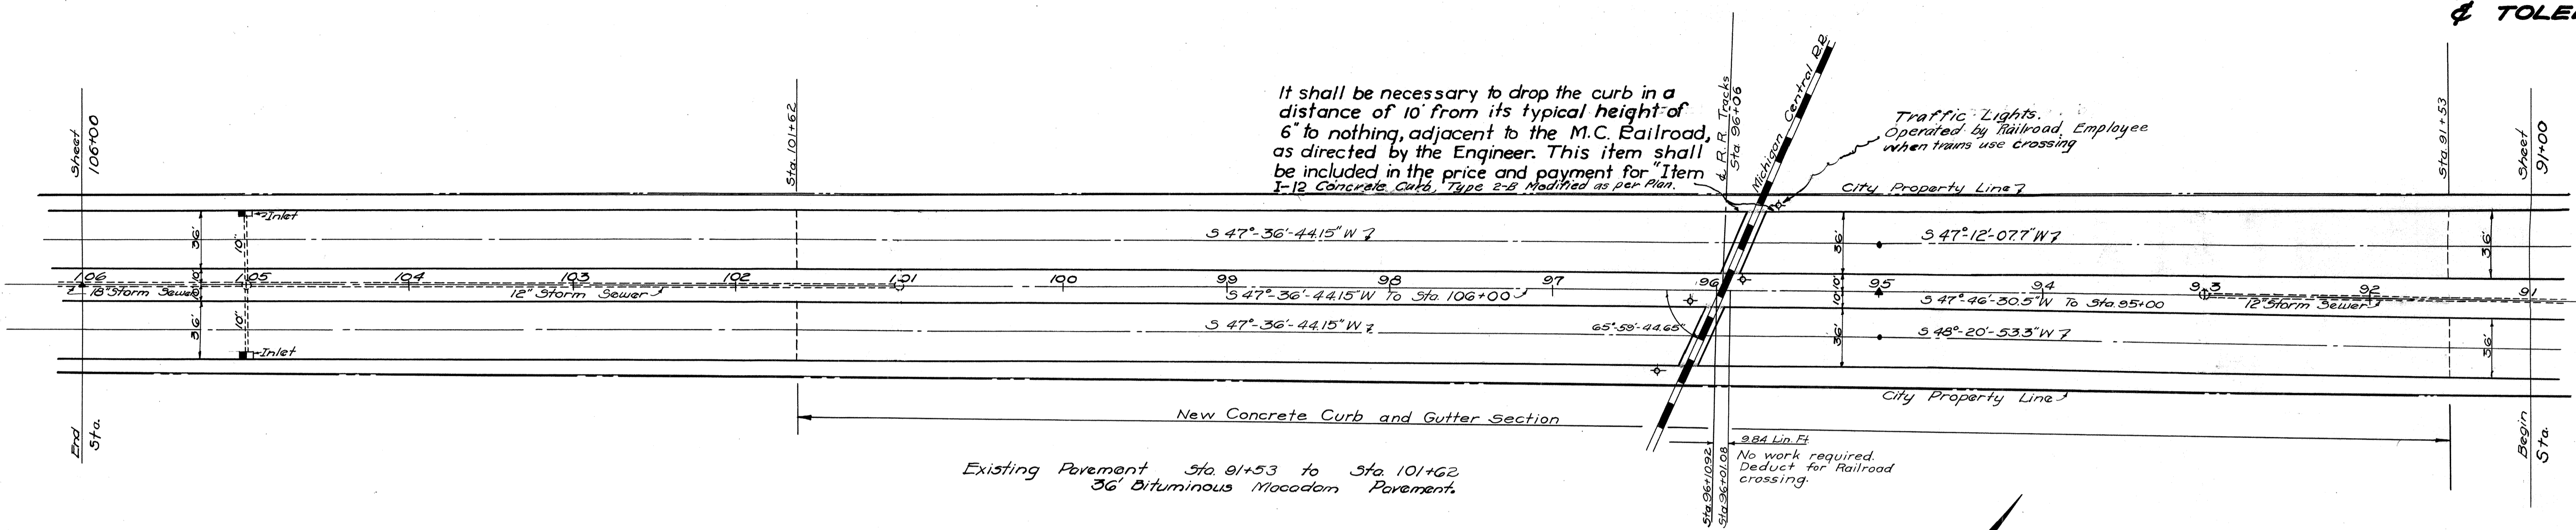 ₵ TOLE
Sheet
106+00
Sta. 101+62
It shall be necessary to drop the curb in a
distance of 10' from its typical height of
6" to nothing, adjacent to the M.C. Railroad,
as directed by the Engineer. This item shall
be included in the price and payment for "Item
I-12 Concrete Curb, Type 2-B Modified as per Plan.
₵ R.R. Tracks
Sta. 96+06
Michigan Central RR
Traffic Lights.
Operated by Railroad Employee
when trains use crossing
Sta. 91+53
Sheet
91+00
City Property Line
Inlet
36'
10"
S 47°-36'-44.15" W
36'
S 47°-12'-07.7" W
36'
106
10'
105
104
103
102
101
100
99
98
97
96
95
94
93
92
91
18" Storm Sewer
12" Storm Sewer
S 47°-36'-44.15" W To Sta. 106+00
10'
10'
S 47°-46'-30.5" W To Sta. 95+00
12" Storm Sewer
36'
10"
S 47°-36'-44.15" W
65°-59'-44.65"
36'
S 48°-20'-53.3" W
36'
Inlet
City Property Line
New Concrete Curb and Gutter Section
End
Sta.
9.84 Lin. Ft.
No work required.
Deduct for Railroad
crossing.
Sta. 96+10.92
Sta. 96+01.08
Begin
Sta.
Existing Pavement Sta. 91+53 to Sta. 101+62
36' Bituminous Macadam Pavement.